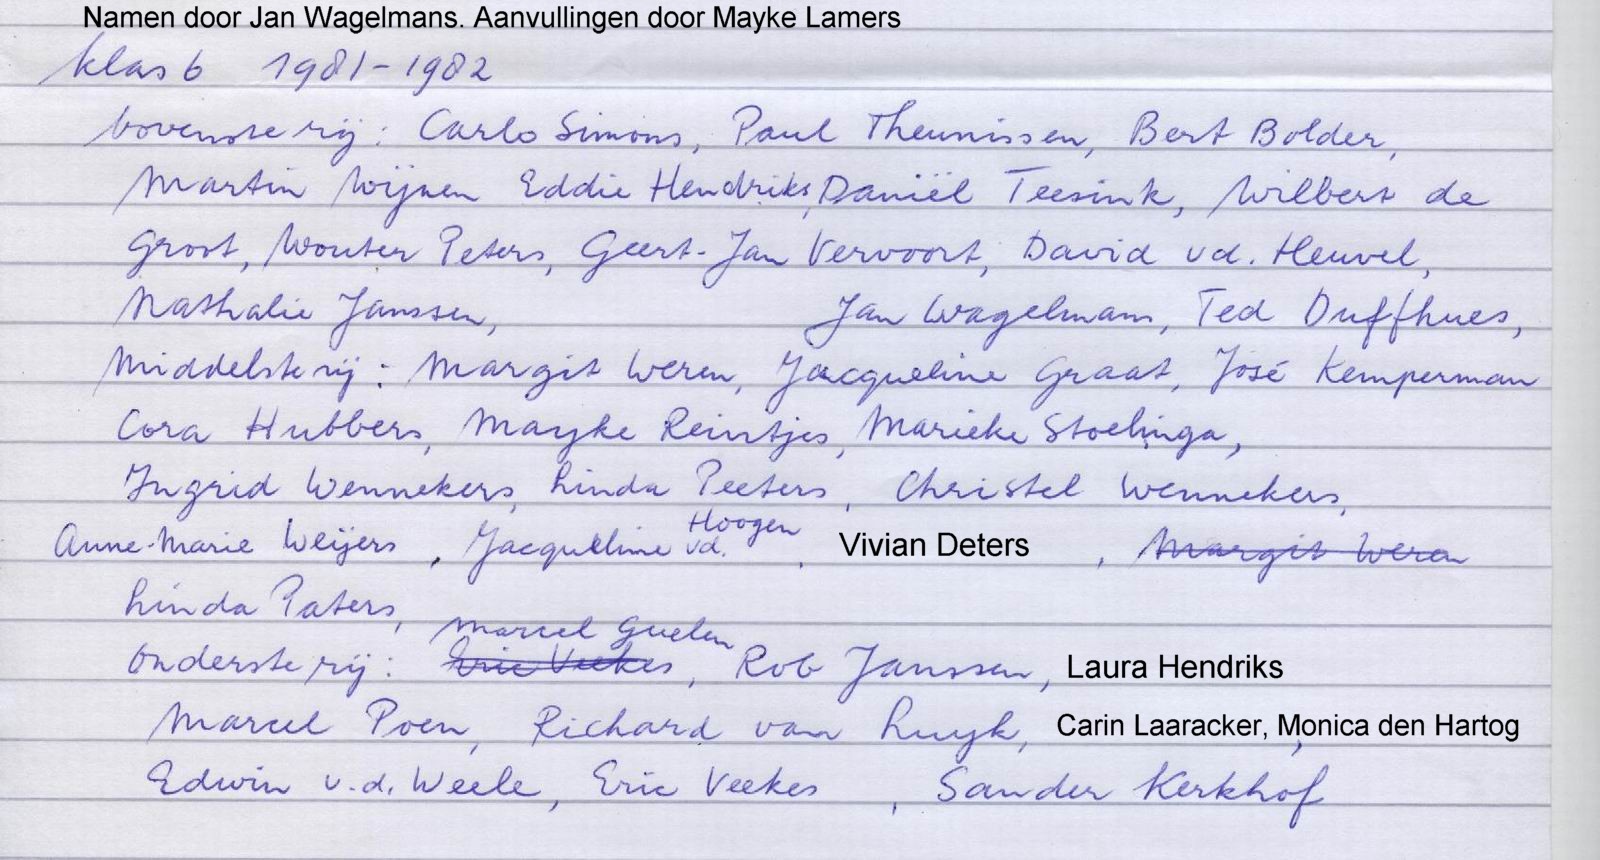 Namen door Jan Wagelmans. Aanvullingen door Mayke Lamers
klas 6 1981-1982
bovenste rij: Carlo Simons, Paul Theunissen, Bert Bolder,
Martin Wijnen Eddie Hendriks, Daniël Teesink, Wilbert de
Groot, Wouter Peters, Geert-Jan Vervoort, David vd. Heuvel,
Nathalie Janssen, Jan Wagelmans, Ted Duffhues,
Middelste rij: Margit Weren, Jacqueline Graat, José Kemperman
Cora Hubbers, Mayke Reintjes, Marieke Stoelinga,
Ingrid Wennekers, Linda Peeters, Christel Wennekers,
Anne-Marie Weijers, Jacqueline vd. Hoogen, Vivian Deters, Margit Weren
Linda Paters,
Marcel Guelen
Onderste rij: Eric Veekes, Rob Janssen, Laura Hendriks
Marcel Poen, Richard van Luyk, Carin Laaracker, Monica den Hartog,
Edwin v.d. Weele, Eric Veekes, Sander Kerkhof